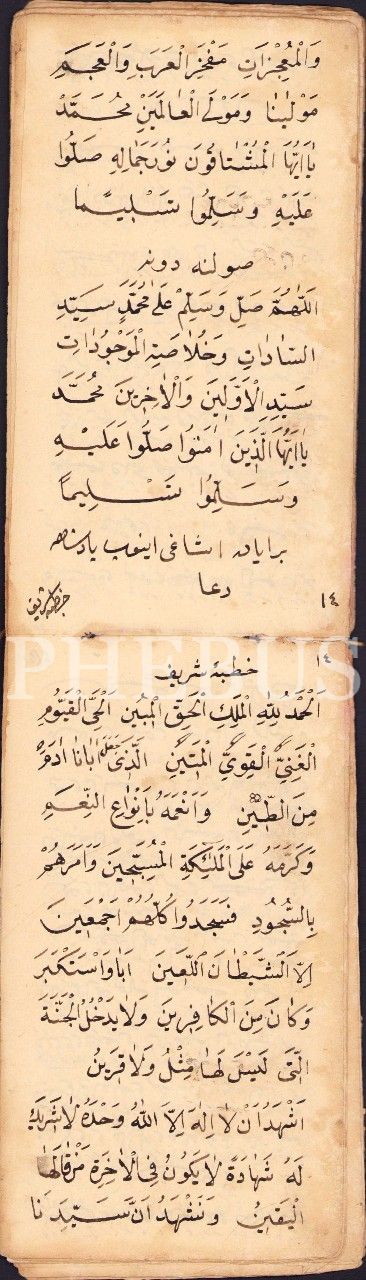 وَالْمُعْجِزَاتِ مَفْخَرِ الْعَرَبِ وَالْعَجَمِ
مَوْلٰينَا وَمَوْلَى الْعَالَمِينَ مُحَمَّدْ
يَا اَيُّهَا الْمُشْتَاقُونَ نُورَ جَمَالِهِ صَلُّوا
عَلَيْهِ وَسَلِّمُوا تَسْلِيمًا
صولنه دونه
اَللّٰهُمَّ صَلِّ وَسَلِّمْ عَلٰى مُحَمَّدٍ سَيِّدِ
السَّادَاتِ وَخُلَاصَةِ الْمَوْجُودَاتِ
سَيِّدِ الْاَوَّلِينَ وَالْاٰخِرِينَ مُحَمَّدْ
يَا اَيُّهَا الَّذِينَ اٰمَنُوا صَلُّوا عَلَيْهِ
وَسَلِّمُوا تَسْلِيمًا
اشاغى اينوب پادشاهه
دعا
١٤
خطبه شريف
PHEBUS
١٤
خطبهٔ شريف
اَلْحَمْدُ لِلّٰهِ الْمَلِكِ الْحَقِّ الْمُبِينِ الْحَىِّ الْقَيُّومِ
الْغَنِىِّ الْقَوِىِّ الْمَتِينِ الَّذِى خَلَقَ اَبَانَا اٰدَمَ
مِنَ الطِّينِ وَاَنْعَمَهُ بِاَنْوَاعِ النِّعَمِ
وَكَرَّمَهُ عَلَى الْمَلٰئِكَةِ الْمُسَبِّحِينَ وَاَمَرَهُمْ
بِالسُّجُودِ فَسَجَدُوا كُلُّهُمْ اَجْمَعِينَ
اِلَّا الشَّيْطَانَ اللَّعِينَ اَبَا وَاسْتَكْبَرَ
وَكَانَ مِنَ الْكَافِرِينَ وَلَا يَدْخُلُ الْجَنَّةَ
الَّتِى لَيْسَ لَهَا مِثْلُ وَلَا قَرِينُ
اَشْهَدُ اَنْ لَا اِلٰهَ اِلَّا اللّٰهُ وَحْدَهُ لَا شَرِيكَ
لَهُ شَهَادَةً لَا يَكُونُ فِى الْاٰخِرَةِ مَنْ قَالَهَا
الْيَقِينُ وَنَشْهَدُ اَنَّ سَيِّدَنَا